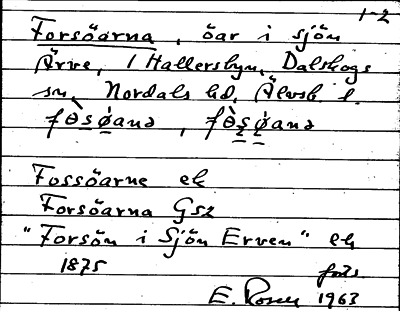 1-2
Forsöarna, öar i sjön
Ärve, / Hallersbyn, Dalskogs
sn, Nordals hd, Älvsb. l.
Fossöarne ek
Forsöarna Gsz
"Forsön i Sjön Erven" ek
1875 forts.
E. Rosen 1963